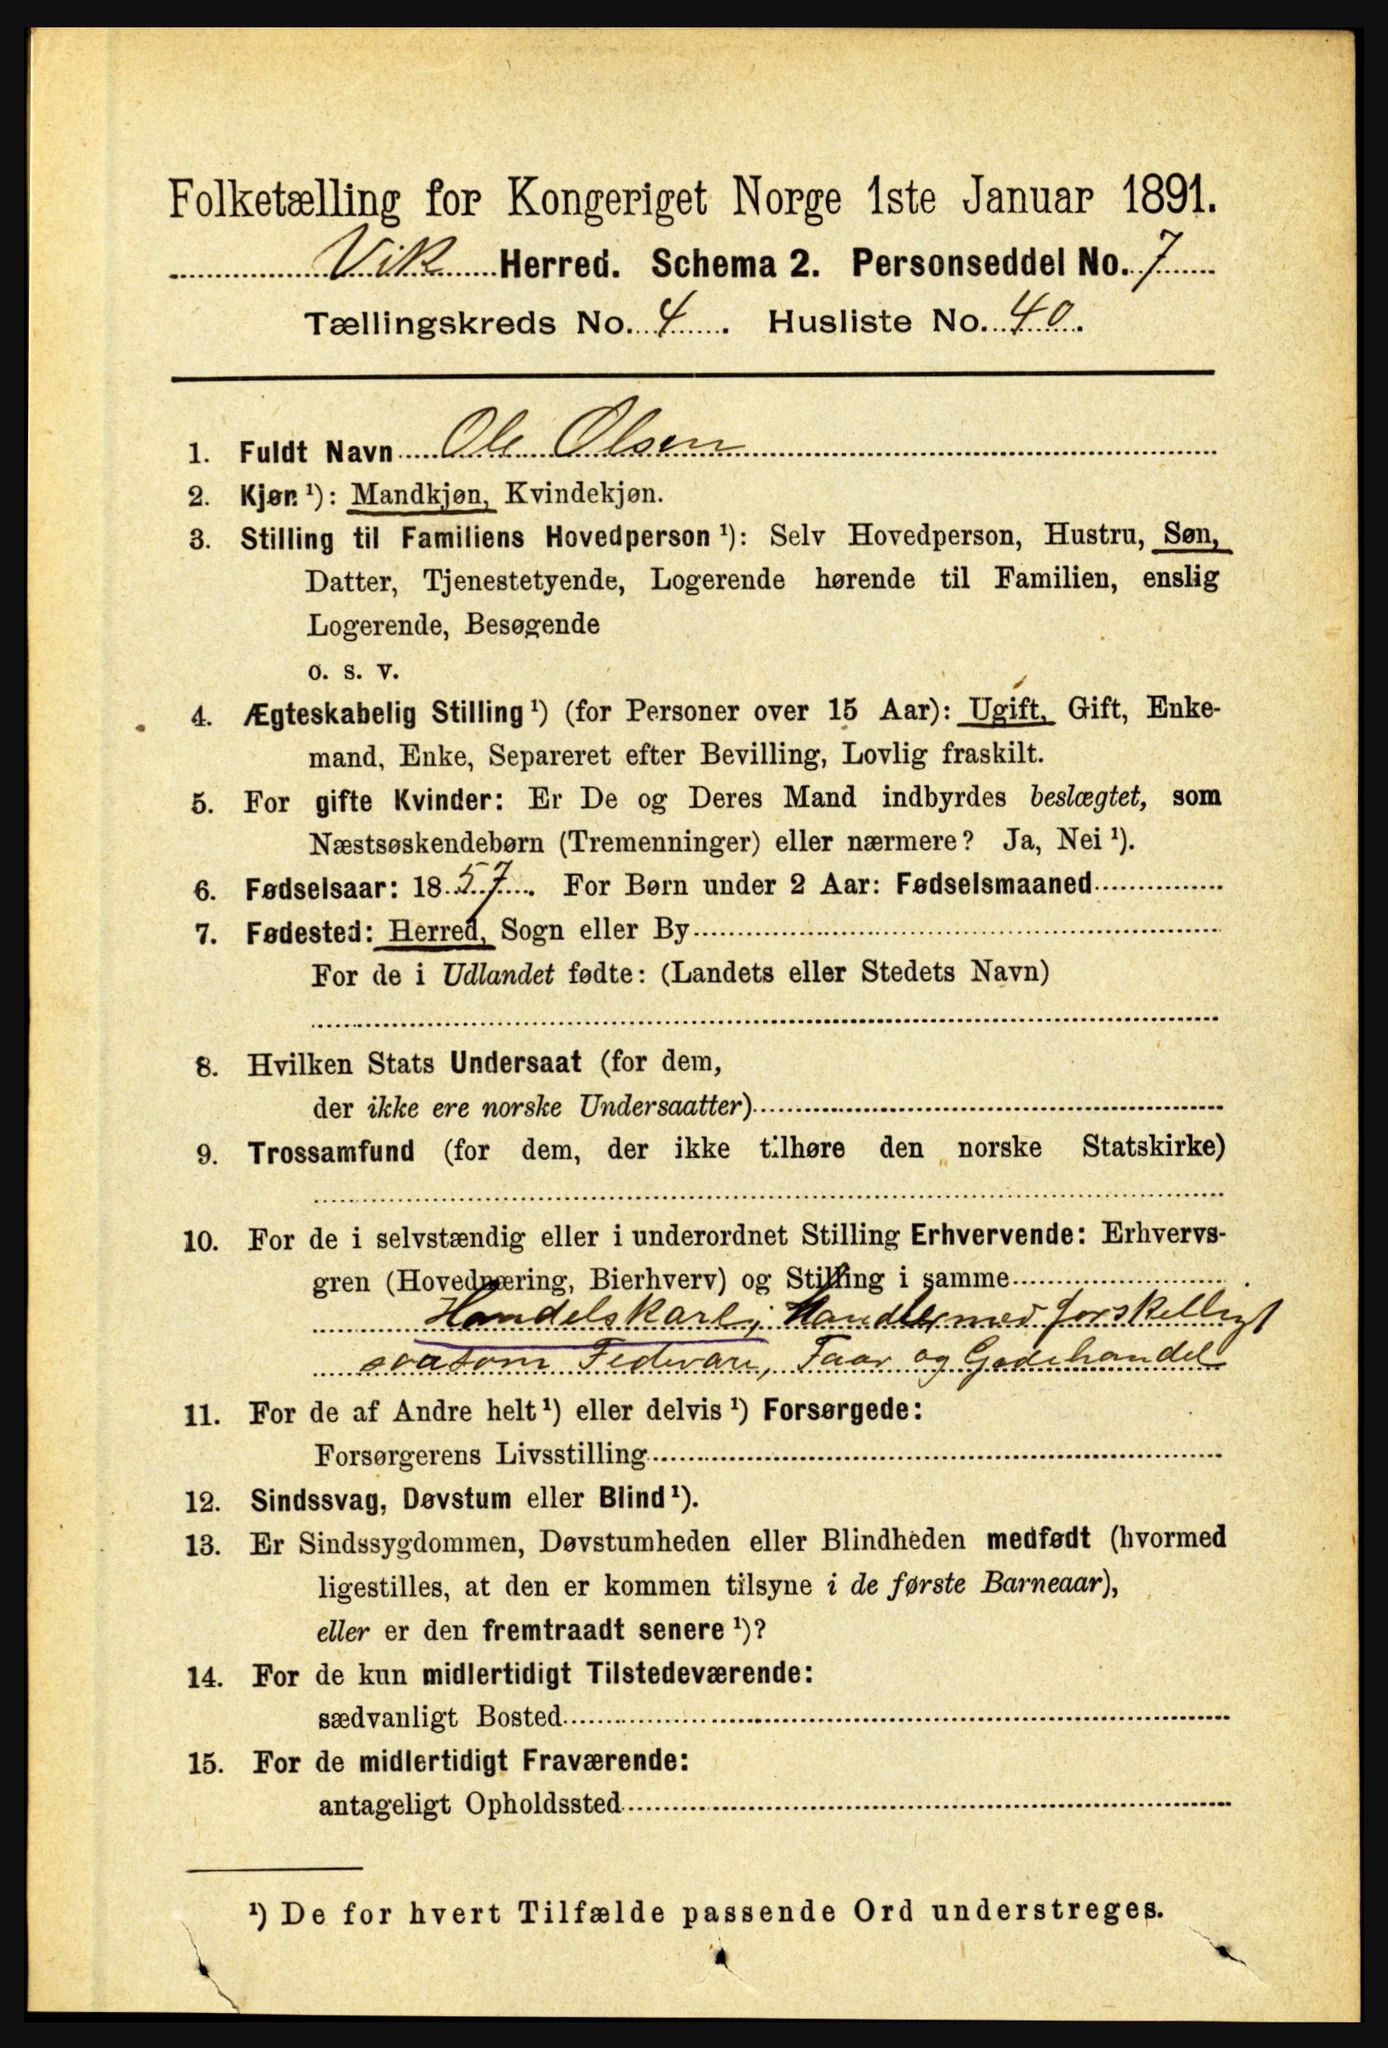 Folketælling for Kongeriget Norge 1ste Januar 1891.
Vik Herred. Schema 2. Personseddel No. 7
Tællingskreds No. 4. Husliste No. 40.
1. Fuldt Navn Ole Olsen
2. Kjøn ¹): Mandkjøn, Kvindekjøn.
3. Stilling til Familiens Hovedperson ¹): Selv Hovedperson, Hustru, Søn,
Datter, Tjenestetyende, Logerende hørende til Familien, enslig
Logerende, Besøgende
o. s. v.
4. Ægteskabelig Stilling ¹) (for Personer over 15 Aar): Ugift, Gift, Enke-
mand, Enke, Separeret efter Bevilling, Lovlig fraskilt.
5. For gifte Kvinder: Er De og Deres Mand indbyrdes beslægtet, som
Næstsøskendebørn (Tremenninger) eller nærmere? Ja, Nei ¹).
6. Fødselsaar: 1857. For Børn under 2 Aar: Fødselsmaaned
7. Fødested: Herred, Sogn eller By
For de i Udlandet fødte: (Landets eller Stedets Navn)
8. Hvilken Stats Undersaat (for dem,
der ikke ere norske Undersaatter)
9. Trossamfund (for dem, der ikke tilhøre den norske Statskirke)
10. For de i selvstændig eller i underordnet Stilling Erhvervende: Erhvervs-
gren (Hovednæring, Bierhverv) og Stilling i samme
Handelskarl; Handler med forskelligt
saasom Fedevare, Faar og Gedehandel
11. For de af Andre helt ¹) eller delvis ¹) Forsørgede:
Forsørgerens Livsstilling
12. Sindssvag, Døvstum eller Blind ¹).
13. Er Sindssygdommen, Døvstumheden eller Blindheden medfødt (hvormed
ligestilles, at den er kommen tilsyne i de første Barneaar),
eller er den fremtraadt senere ¹)?
14. For de kun midlertidigt Tilstedeværende:
sædvanligt Bosted
15. For de midlertidigt Fraværende:
antageligt Opholdssted
¹) De for hvert Tilfælde passende Ord understreges.